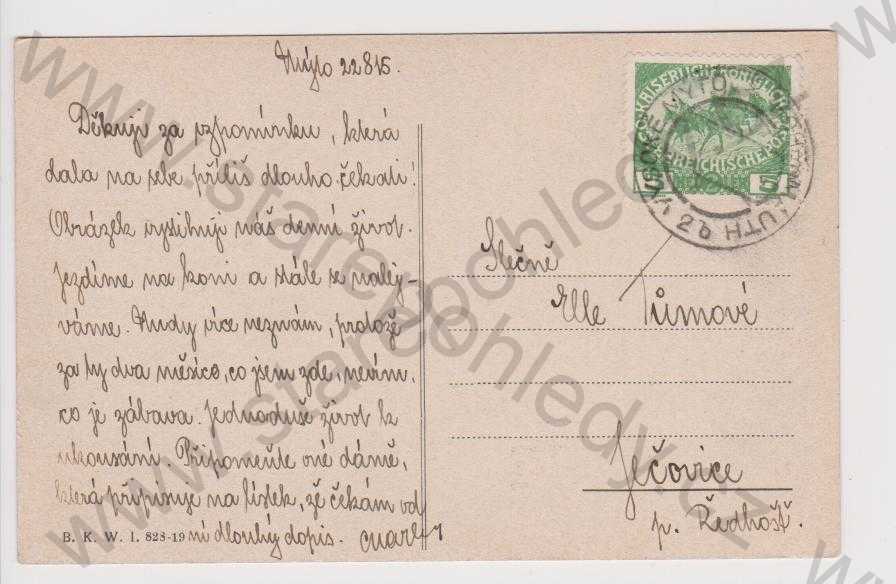 Mýto 22 8 15.
Děkuji za vzpomínku, která
dala na sebe příliš dlouho čekati!
Obrázek vystihuje náš denní život.
Jezdíme na koni a stále se nalej-
váme. Nudy více neznám, protože
za ty dva měsíce, co jsem zde, nevím,
co je zábava. Jednoduše život k
ukousání Připomeňte oné dámě,
která připisuje na lístek, že čekám od
ní dlouhý dopis.
B. K. W. I. 828-19
Slečně
Elle Tůmové
Ječovice
p. Ředhošť.
VYSOKÉ MÝTO
www.starepohledy.cz
www.starepohledy.cz